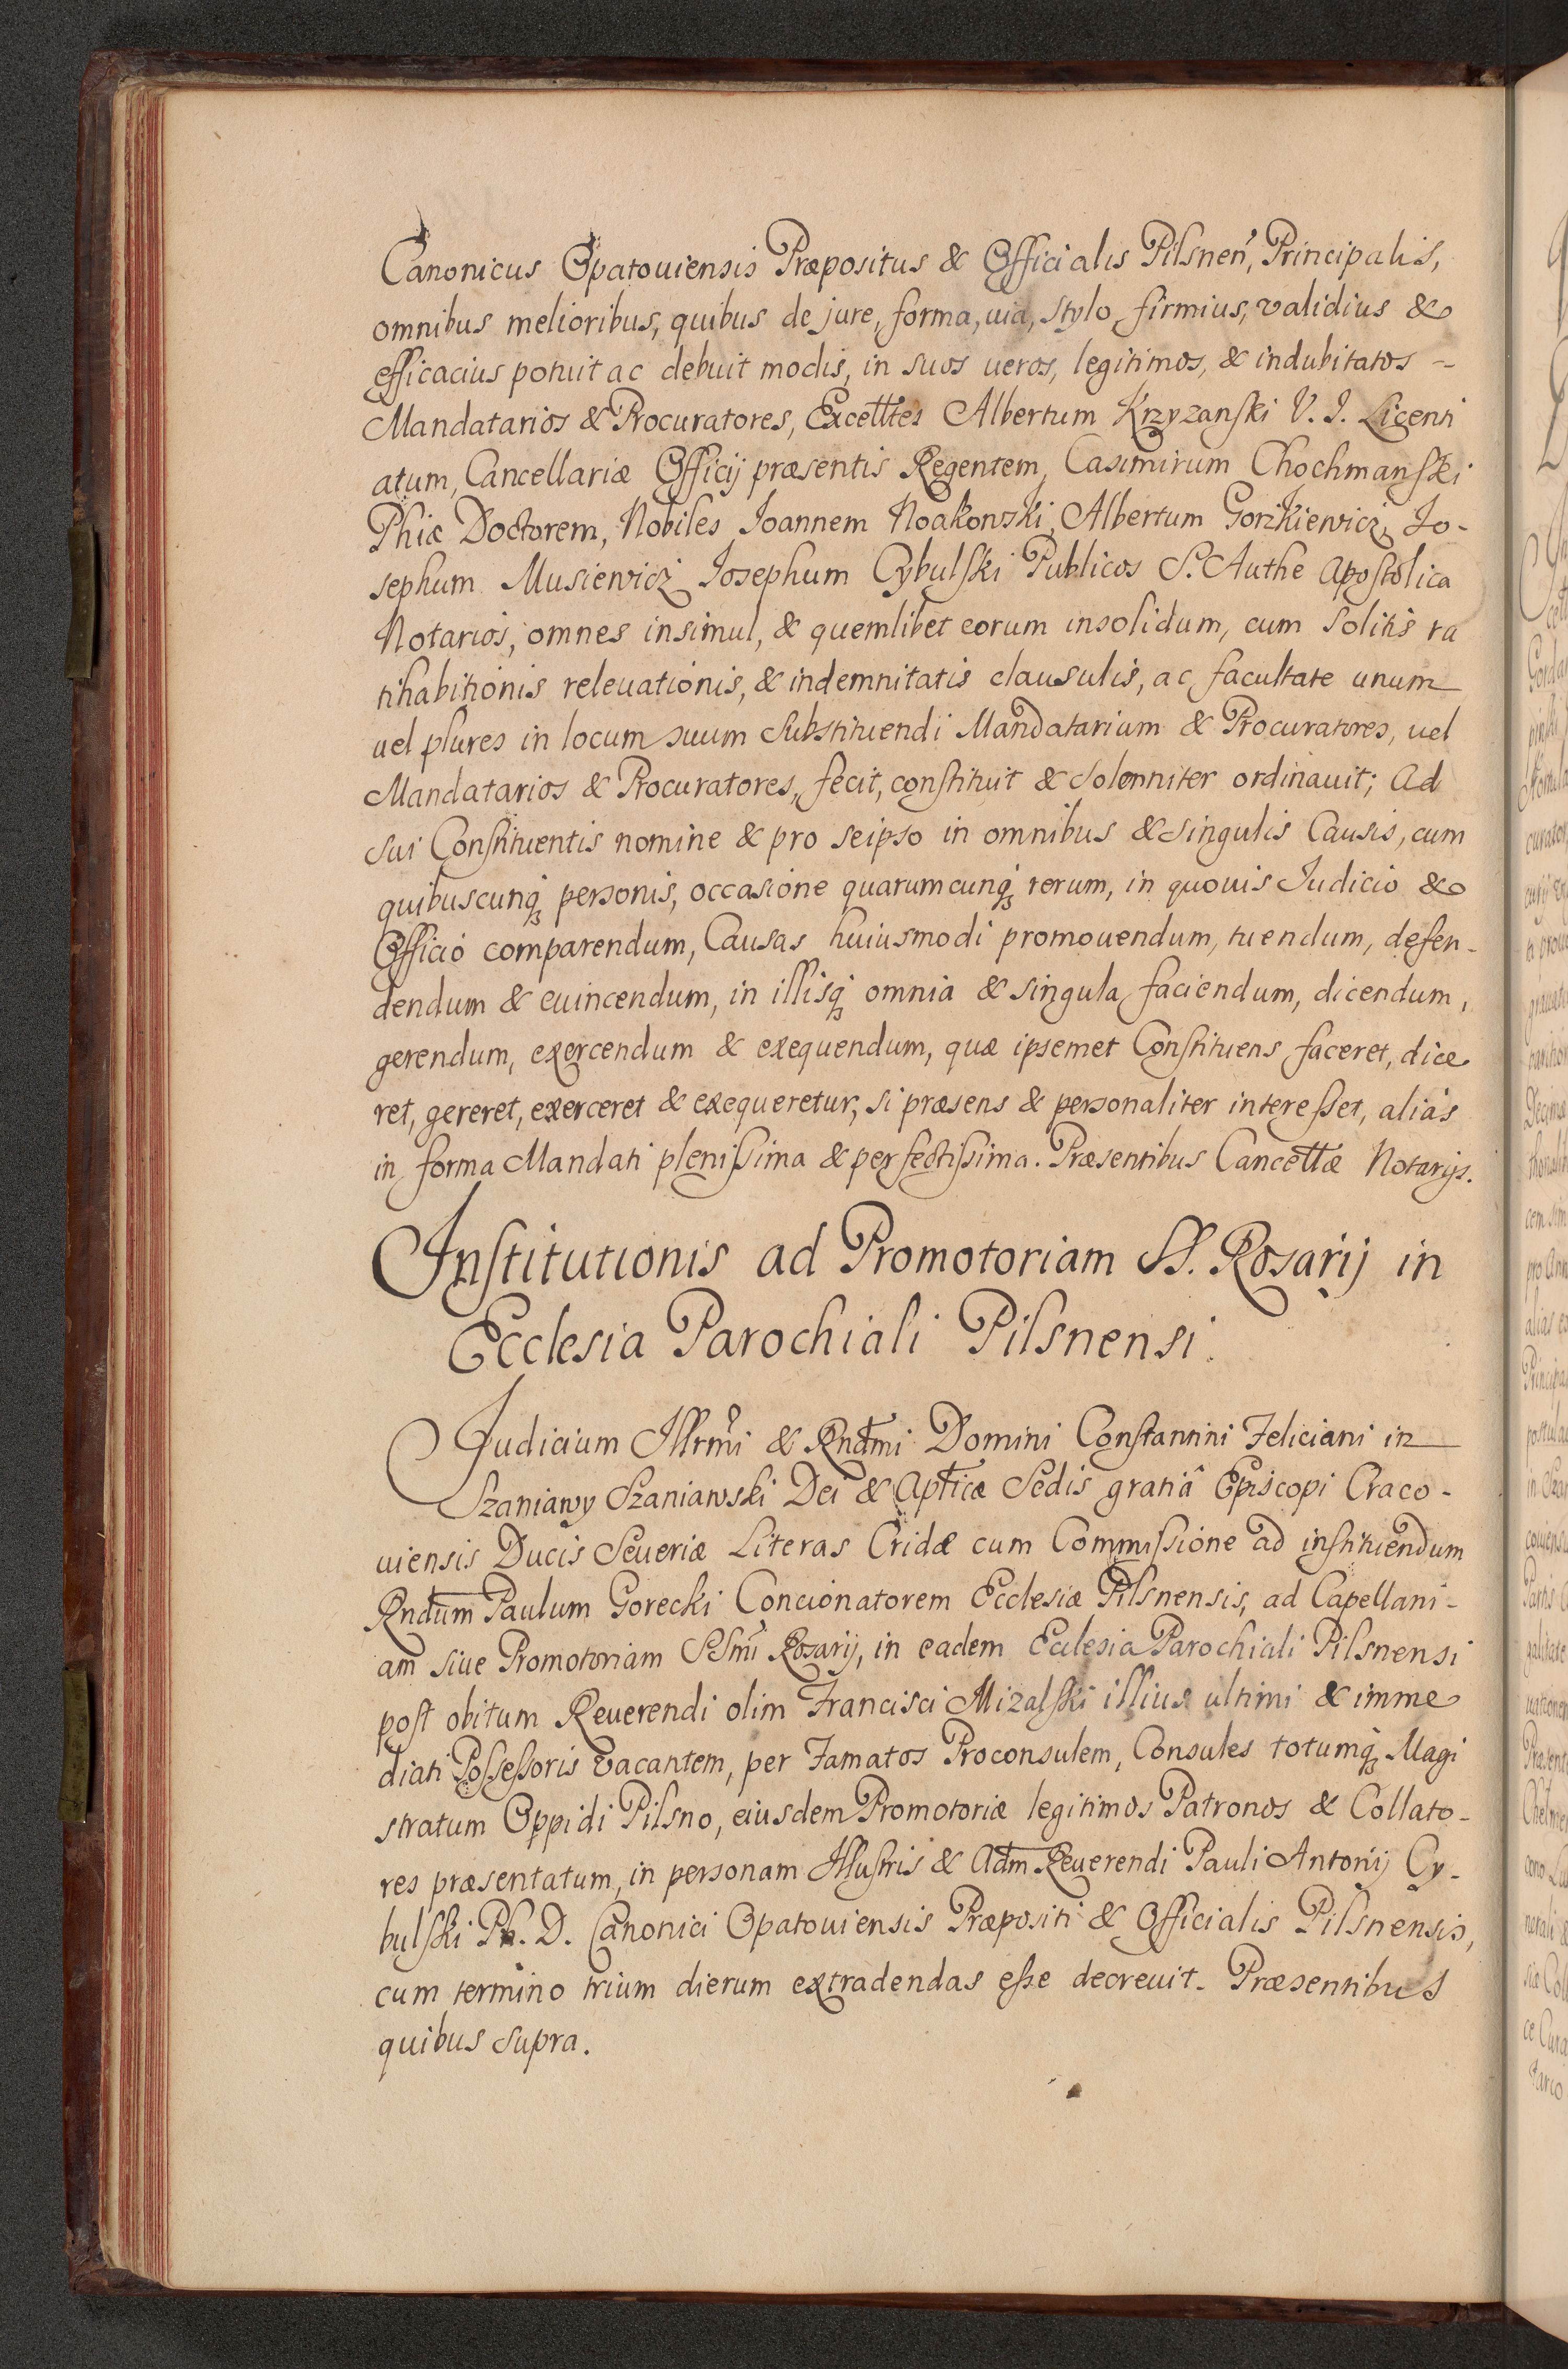 Canonicus Opatouiensis Præpositus & Officialis Pilsnen̄, Principalis,
omnibus melioribus, quibus de jure, forma, uia, stylo firmius, validius &
efficacius potuit ac debuit modis, in suos ueros, legitimos, & indubitatos -
Mandatarios & Procuratores, Excelltes Albertum Krzyzanski V. J. Licenti
atum, Cancellariæ Officij præsentis Regentem, Casimirum Chochmanski
Phiæ Doctorem, Nobiles Joannem Noakowski, Albertum Gorzkiewicz, Jo-
sephum Musiewicz Josephum Cybulski Publicos S. Authe Apostolica
Notarios, omnes insimul, & quemlibet eorum insolidum, cum solitis ra
tihabitionis releuationis, & indemnitatis clausulis, ac facultate unum
uel plures in locum suum substituendi Mandatarium & Procuratores, uel
Mandatarios & Procuratores, fecit, constituit & solenniter ordinauit; Ad
sui Constituentis nomine & pro seipso in omnibus & singulis Causis, cum
quibuscunq; personis, occasione quarumcunq; rerum, in quouis Judicio &
Officio comparendum, Causas huiusmodi promouendum, tuendum, defen-
dendum & euincendum, in illisq; omnia & singula faciendum, dicendum,
gerendum, exercendum & exequendum, quæ ipsemet Constituens faceret, dice
ret, gereret, exerceret & exequeretur, si præsens & personaliter interesset, aliás
in forma Mandati plenissima & perfectissima. Præsentibus Cancellæ Notarijs.
Institutionis ad Promotoriam SS. Rosarij in
Ecclesia Parochiali Pilsnensi.
Judicium Illrmi & Rndmi Domini Constantini Feliciani in
Szaniawy Szaniawski Dei & Apticæ Sedis gratiâ Episcopi Craco-
uiensis Ducis Seueriæ Literas Cridæ cum Commissione ad instituendum
Rndum Paulum Gorecki Concionatorem Ecclesiæ Pilsnensis, ad Capellani-
am siue Promotoriam SSmi Rosarij, in eadem Ecclesia Parochiali Pilsnensi
post obitum Reuerendi olim Francisci Mizalski illius ultimi & imme
diati Possessoris vacantem, per Famatos Proconsulem, Consules totumq; Magi
stratum Oppidi Pilsno, eiusdem Promotoriæ legitimos Patronos & Collato-
res præsentatum, in personam Illustris & Adm Reuerendi Pauli Antonij Cy-
bulski Ph. D. Canonici Opatouiensis Præpositi & Officialis Pilsnensis,
cum termino trium dierum extradendas esse decreuit. Præsentibus
quibus supra.